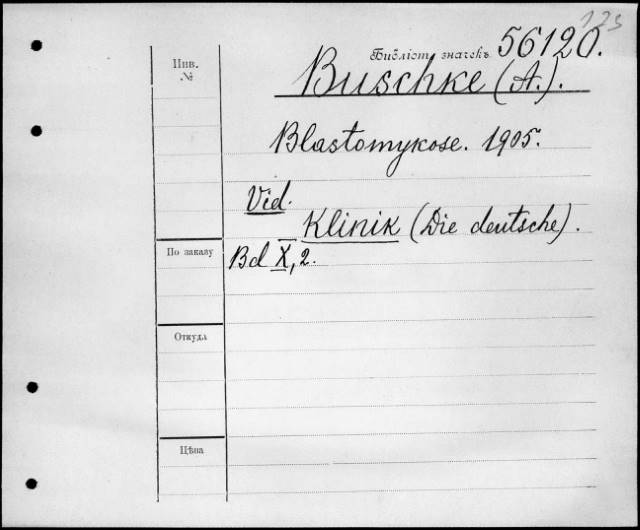 173
Инв.
№
Библіот. значекъ 56120.
Buschke (A.).
Blastomykose. 1905.
Vid.
Klinik (Die deutsche).
По заказу
Bd X, 2.
Откуда
Цѣна